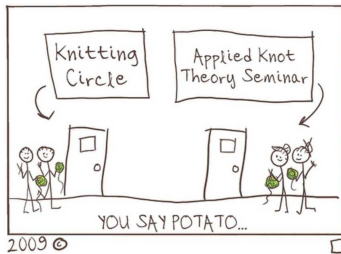 Knitting
Circle
Applied Knot
Theory Seminar
YOU SAY POTATO...
2009 ©